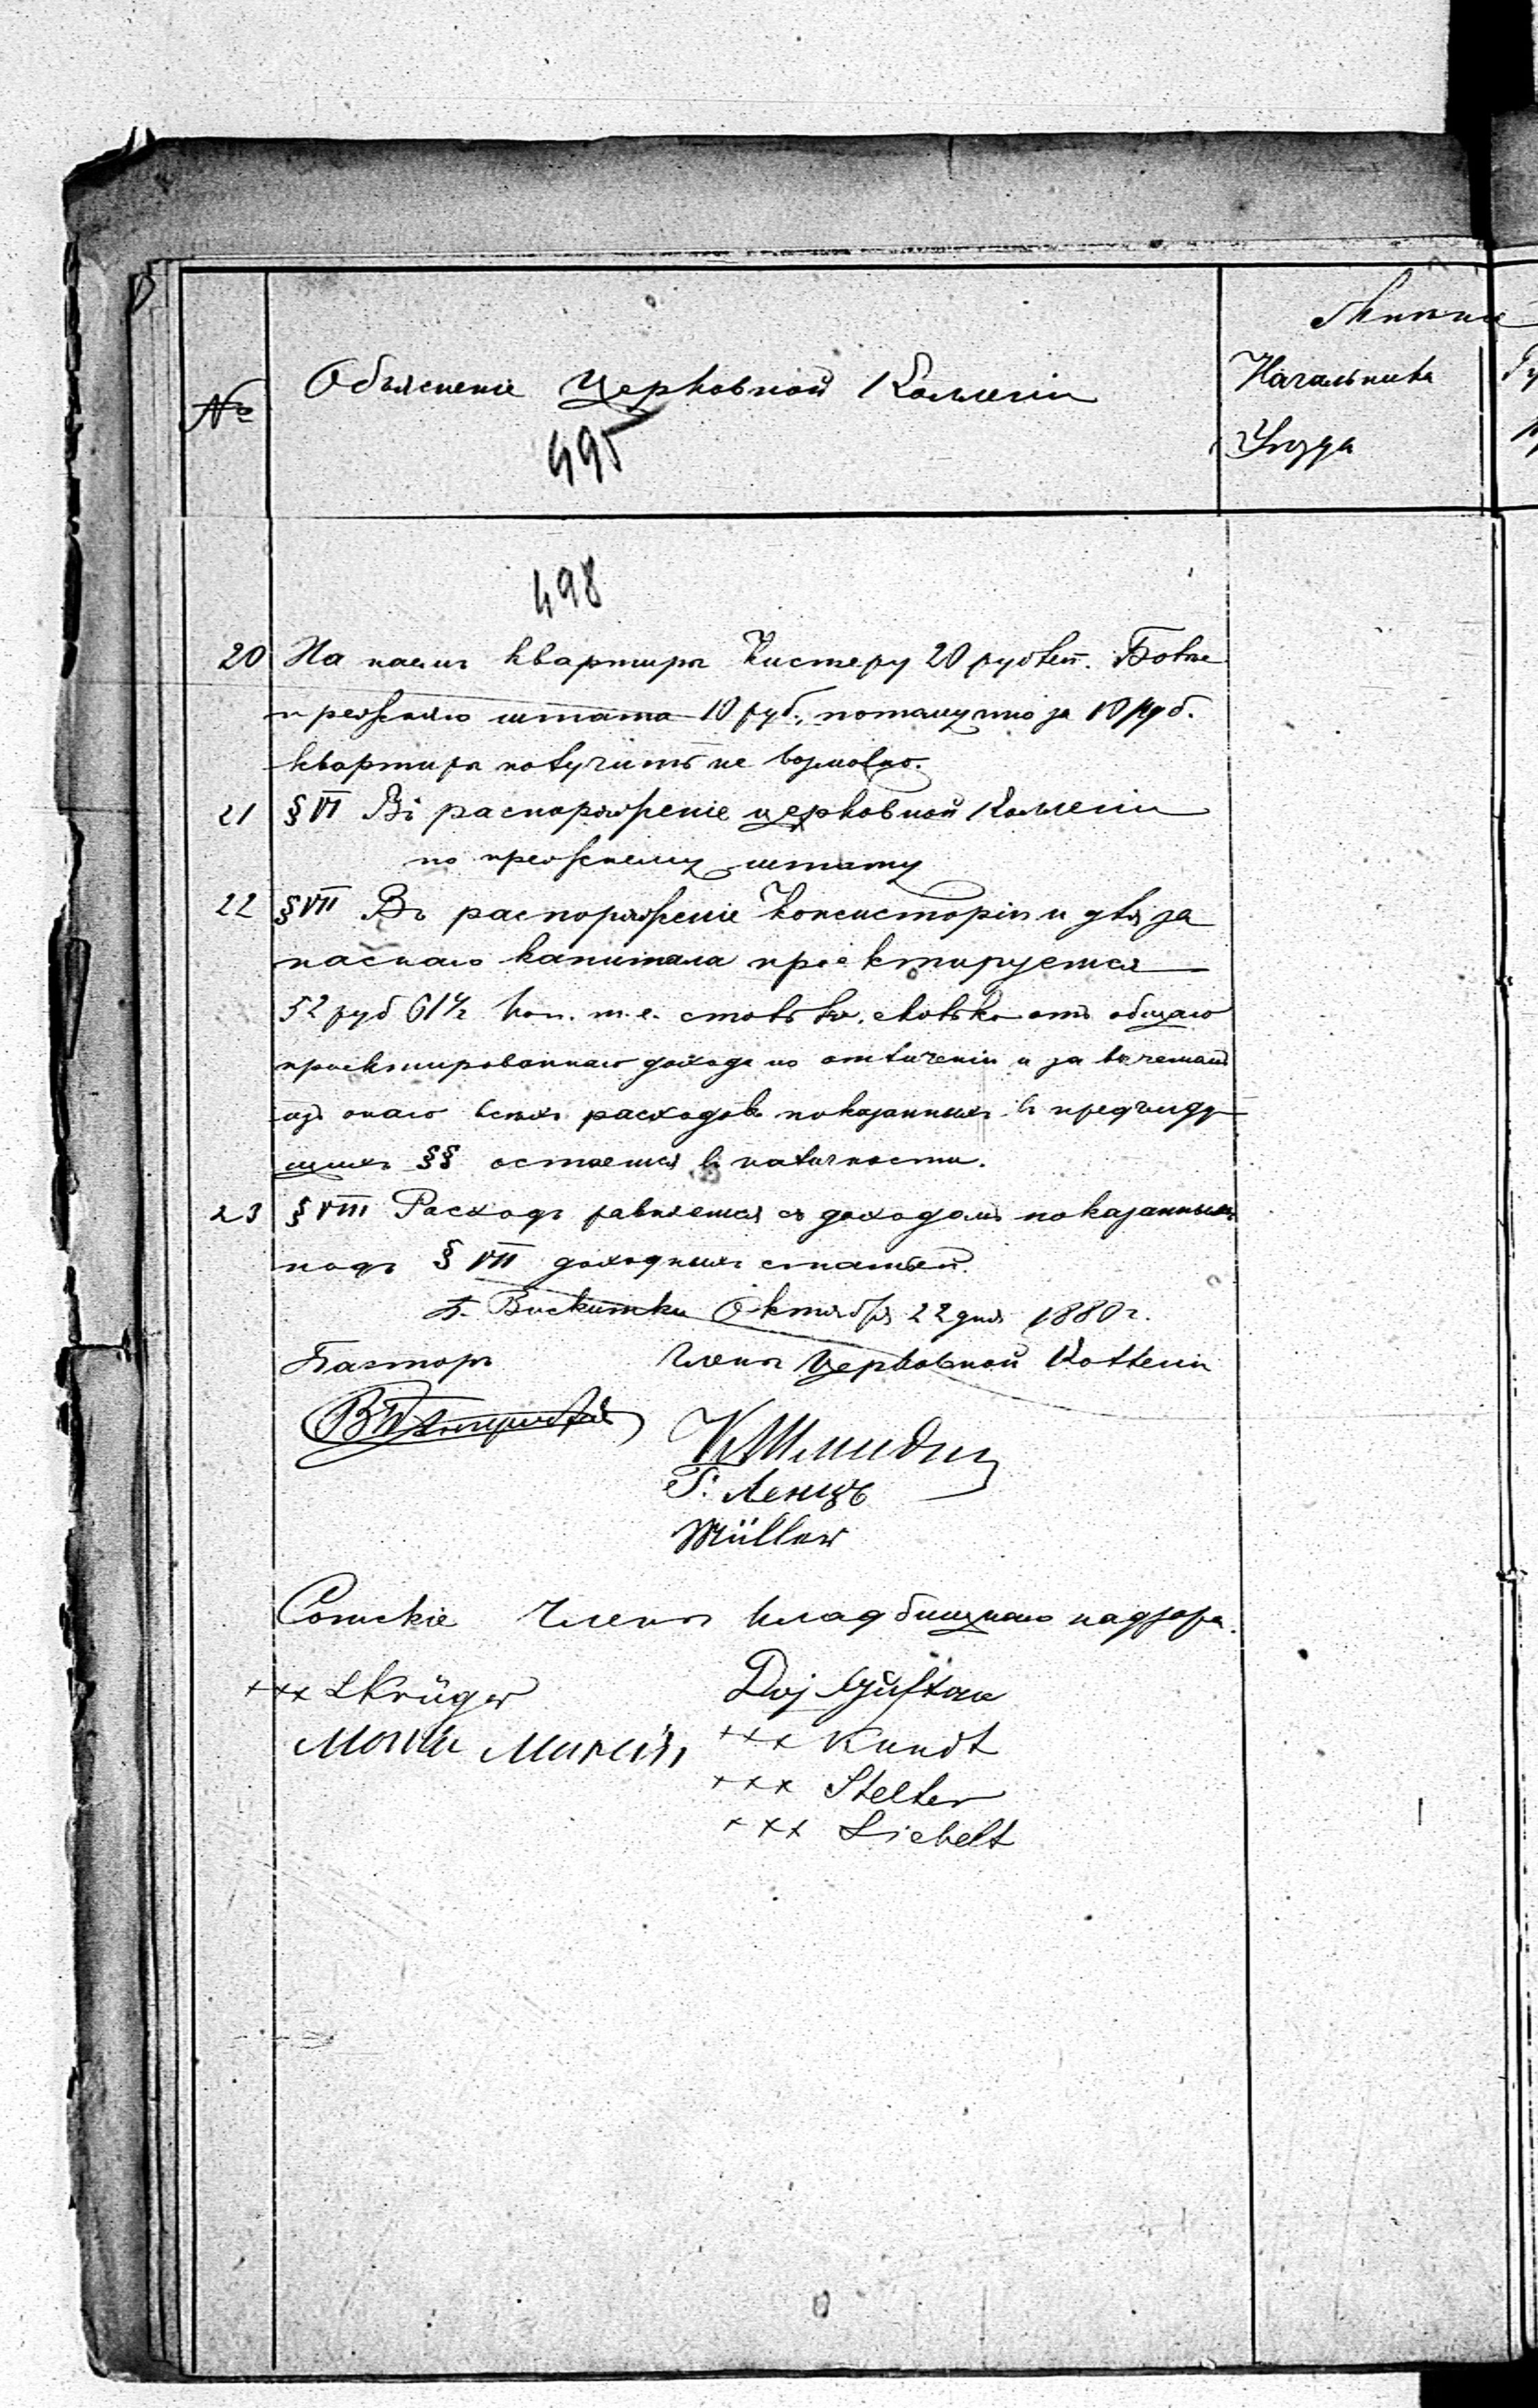 Мнѣние
№ Объясненіе Церковной Коллегіи Начальника
Уѣзда
495
498
20 На наемъ квартиры Кистеру 20 рублей. Болѣе
прежняго штата 10 руб., потому что за 10 руб.
квартиры получить не возможно.
21 § VI Въ распоряженіе церковной Коллегіи
по прежнему штату
22 § VII Въ распоряженіе Консисторіи и для за
паснаго капитала проектируется
52 руб 61½ коп. т.е. столько, сколько отъ общаго
проектированнаго дохода по отличеніи и за вычетомъ
изъ онаго всѣхъ расходовъ показанныхъ въ предъиду
щихъ §§ остается въ наличности.
23 § VIII Расходъ равняется съ доходомъ показаннымъ
подъ § VII доходныхъ статьей.
П. Вискитки Октября 22 дня 1880 г.
Пасторъ Члены Церковной Коллегіи
К Шмидтъ
Г. Ленцъ
Müller
Сотскіе Члены кладбищнаго надзора.
xxx L Krüger
xxx Kundt
xxx Stelter
xxx Liebelt